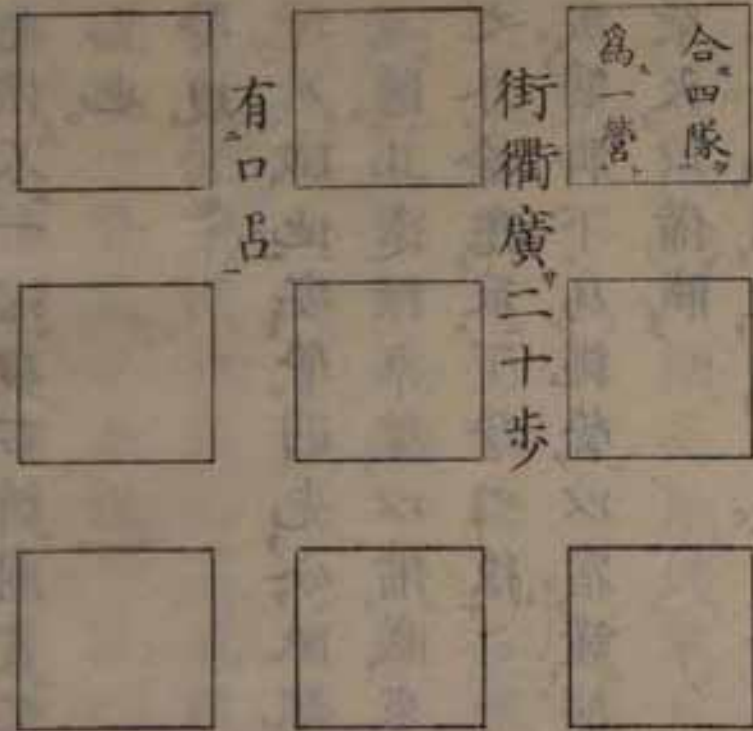 合四隊
為一營
街衢廣二十歩
有口占